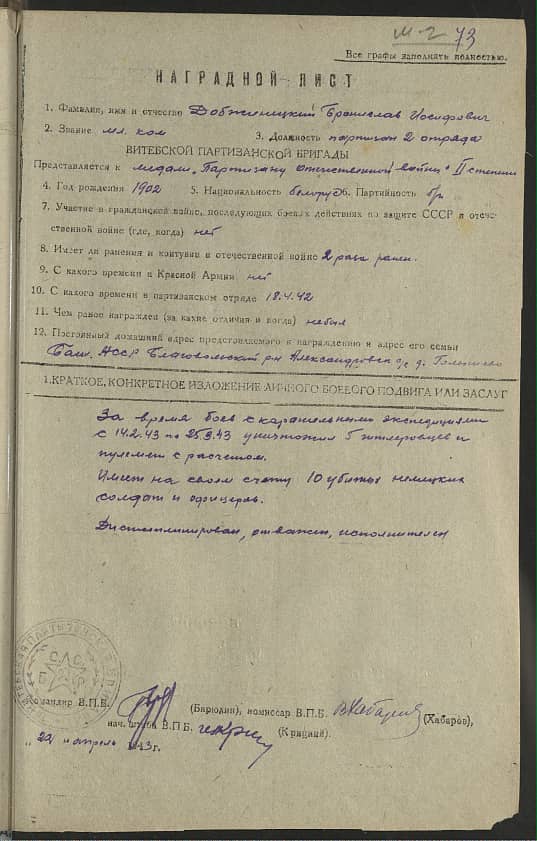 М-2 73
Все графы заполнять полностью.
НАГРАДНОЙ ЛИСТ
1. Фамилия, имя и отчество Добжиницкий Бронислав Иосифович
2. Звание мл. ком 3. Должность партизан 2 отряда
ВИТЕБСКОЙ ПАРТИЗАНСКОЙ БРИГАДЫ
Представляется к медали "Партизану отечественной войны" II степени
4. Год рождения 1902 5. Национальность белорус 6. Партийность б/п
7. Участие в гражданской войне, последующих боевых действиях по защите СССР и отече-
ственной войне (где, когда) нет
8. Имеет ли ранения и контузии в отечественной войне 2 раза ранен.
9. С какого времени в Красной Армии нет
10. С какого времени в партизанском отряде 18.4.42
11. Чем ранее награжден (за какие отличия и когда) не был
12. Постоянный домашний адрес представляемого к награждению и адрес его семьи
Баш. АССР р-н Александровск с/с д.
1. КРАТКОЕ, КОНКРЕТНОЕ ИЗЛОЖЕНИЕ ЛИЧНОГО БОЕВОГО ПОДВИГА ИЛИ ЗАСЛУГ
За время боев с карательными экспедициями
с 14.2.43 по 25.3.43 уничтожил 5 гитлеровцев и
пулемет с расчетом.
Имеет на своем счету 10 убитых немецких
солдат и офицеров.
Дисциплинирован, отважен, исполнителен
Командир В.П.Б. (Бирюлин), комиссар В.П.Б. ВХабаров (Хабаров)
нач. штаба В.П.Б. (Крицкий).
"22" апреля 1943г.